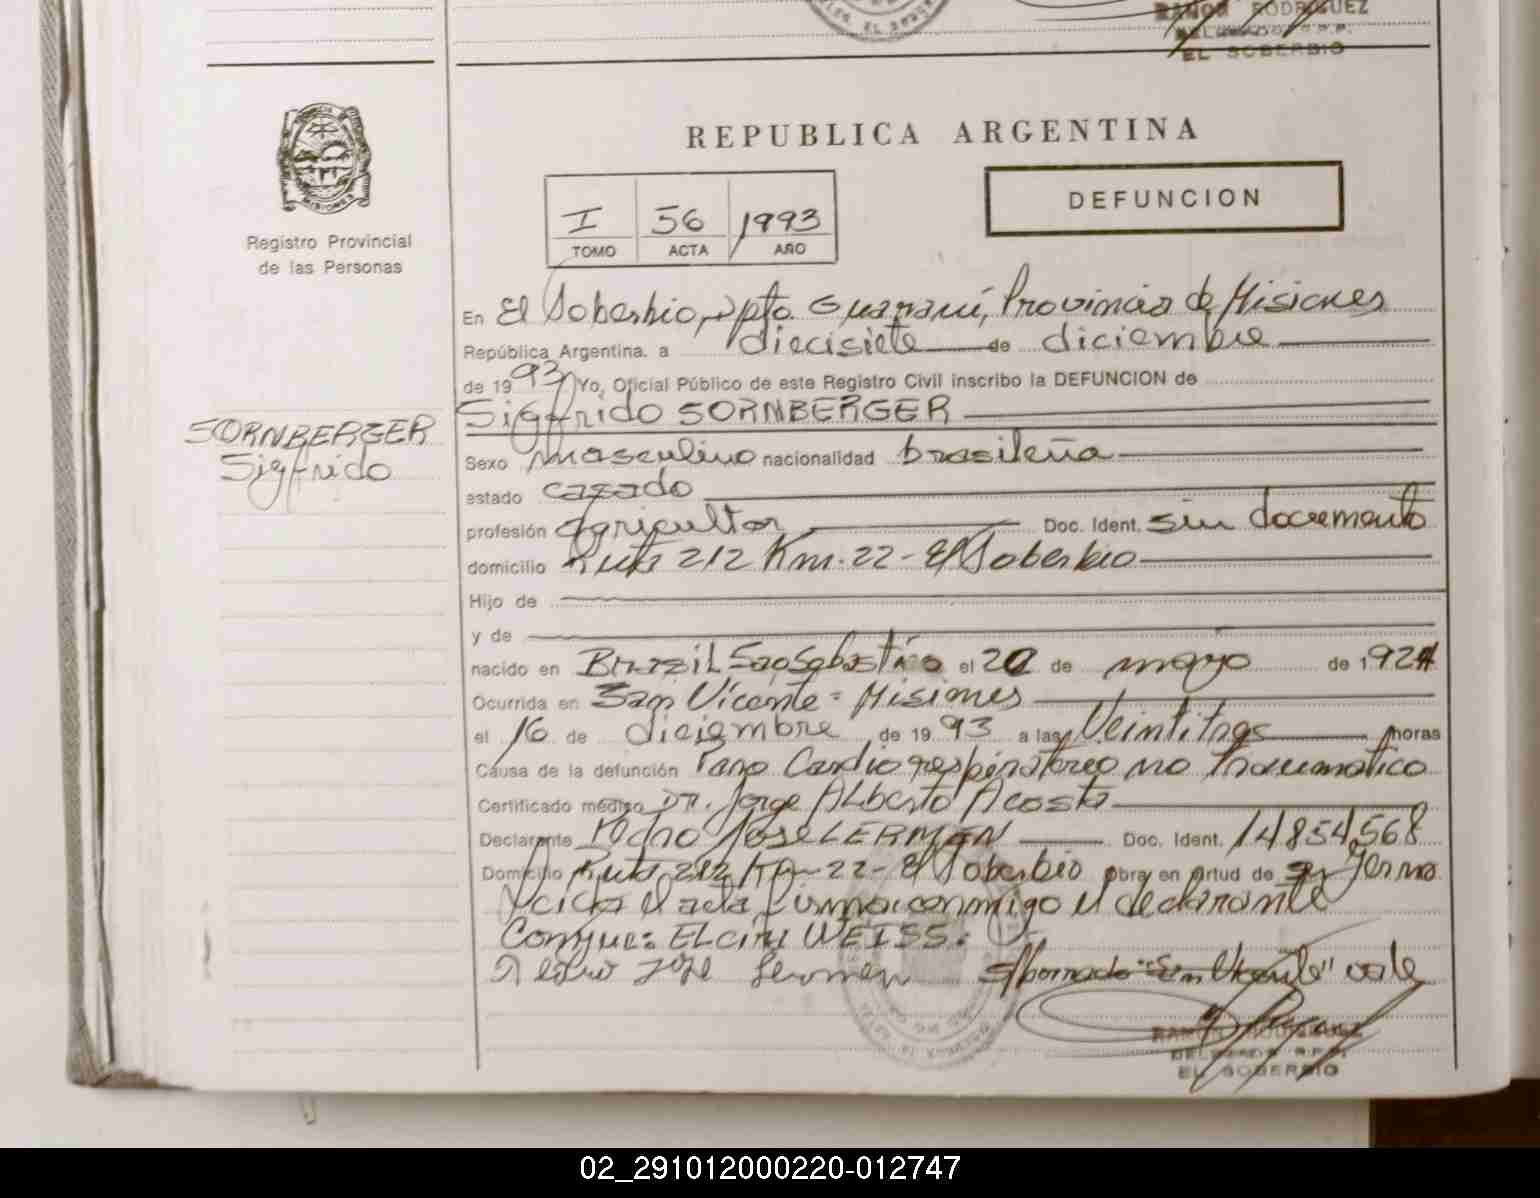 RAMON RODRIGUEZ
DELEGADO R.P.P.
EL SOBERBIO
REPUBLICA ARGENTINA
DEFUNCION
I 56 1993
TOMO ACTA AÑO
Registro Provincial
de las Personas
En El Soberbio, Dpto. Guaraní, Provincia de Misiones
República Argentina. a diecisiete de diciembre
de 1993 Yo, Oficial Público de este Registro Civil inscribo la DEFUNCION de
Sigfrido SORNBERGER
SORNBERGER
Sigfrido
Sexo masculino nacionalidad brasileña
estado casado
profesión agricultor Doc. Ident. sin documento
domicilio Ruta 212 Km. 22 - El Soberbio
Hijo de
y de
nacido en Brazil Sao Sebastiao el 20 de mayo de 1924
Ocurrida en San Vicente - Misiones
el 16 de diciembre de 1993 a las Veintitres horas
Causa de la defunción Paro Cardio respiratorio no traumatico
Certificado médico Dr. Jorge Alberto Acosta
Declarante Pedro José LERMEN Doc. Ident. 14854568
Domicilio Ruta 212 Km-22- El Soberbio obra en virtud de ser Yerno
Leida el acta firma conmigo el declarante
Conyue: ELCIRI WEISS.
Pedro José Lermen S/borrado "San Vicente" vale
RAMON RODRIGUEZ
DELEGADO R.P.P.
EL SOBERBIO
02_291012000220-012747